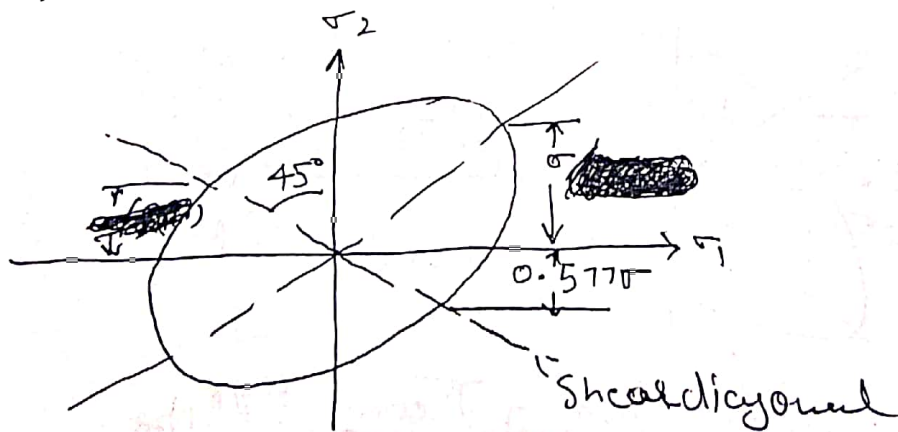 σ2
45°
σ
σ1
0.577σ
Shear diagonal